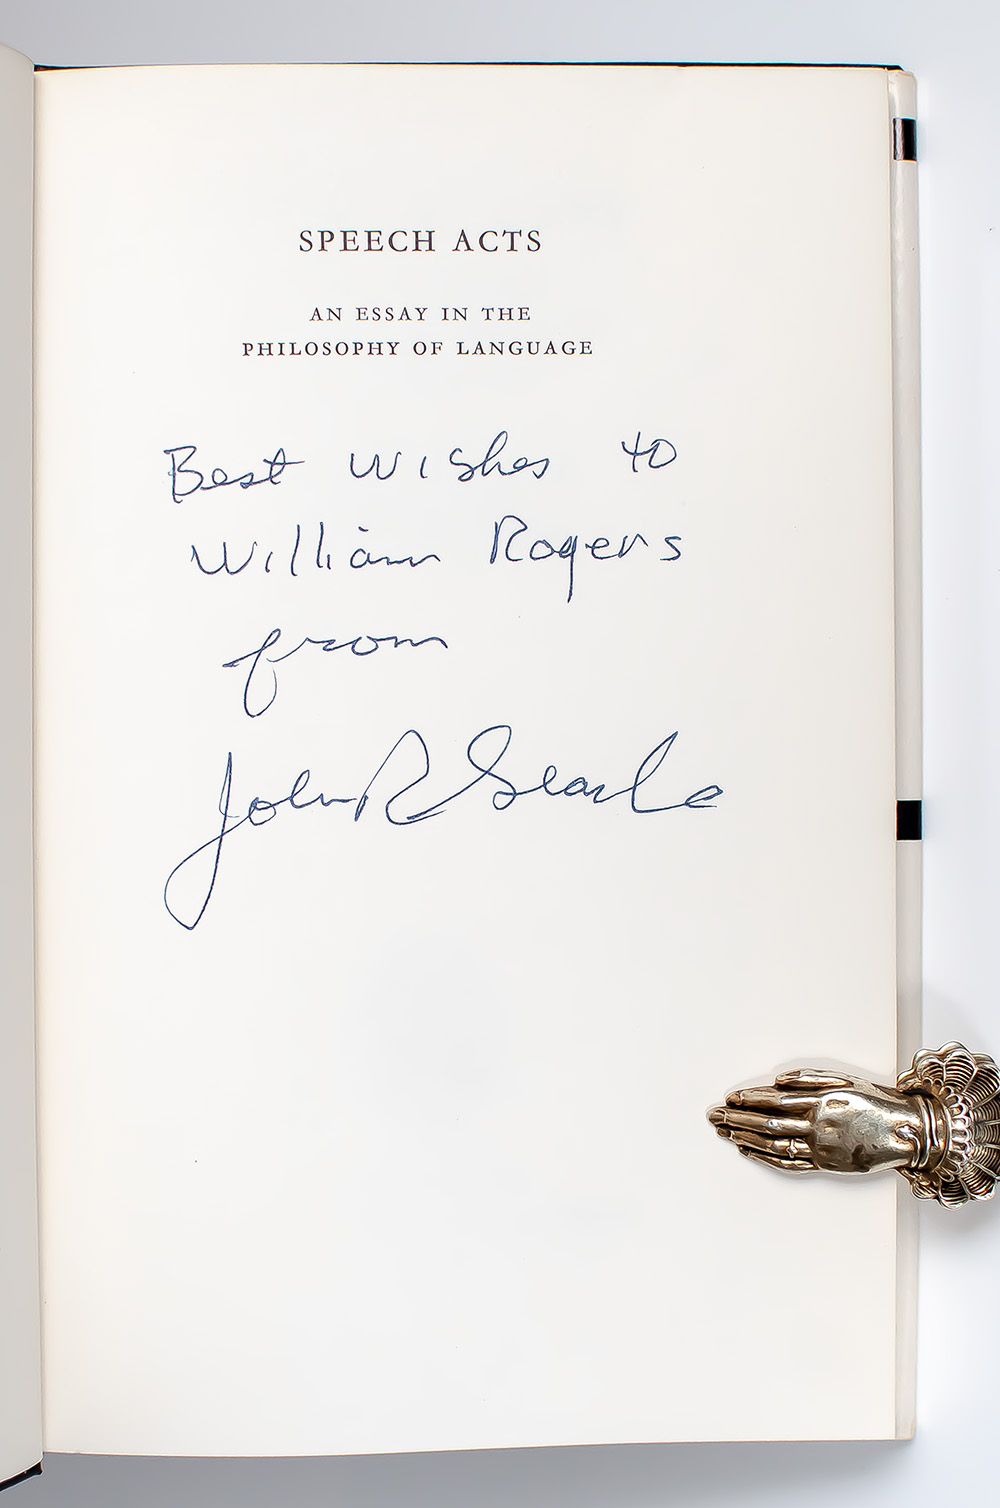 SPEECH ACTS
AN ESSAY IN THE
PHILOSOPHY OF LANGUAGE
Best Wishes to
William Rogers
from
John R Searle